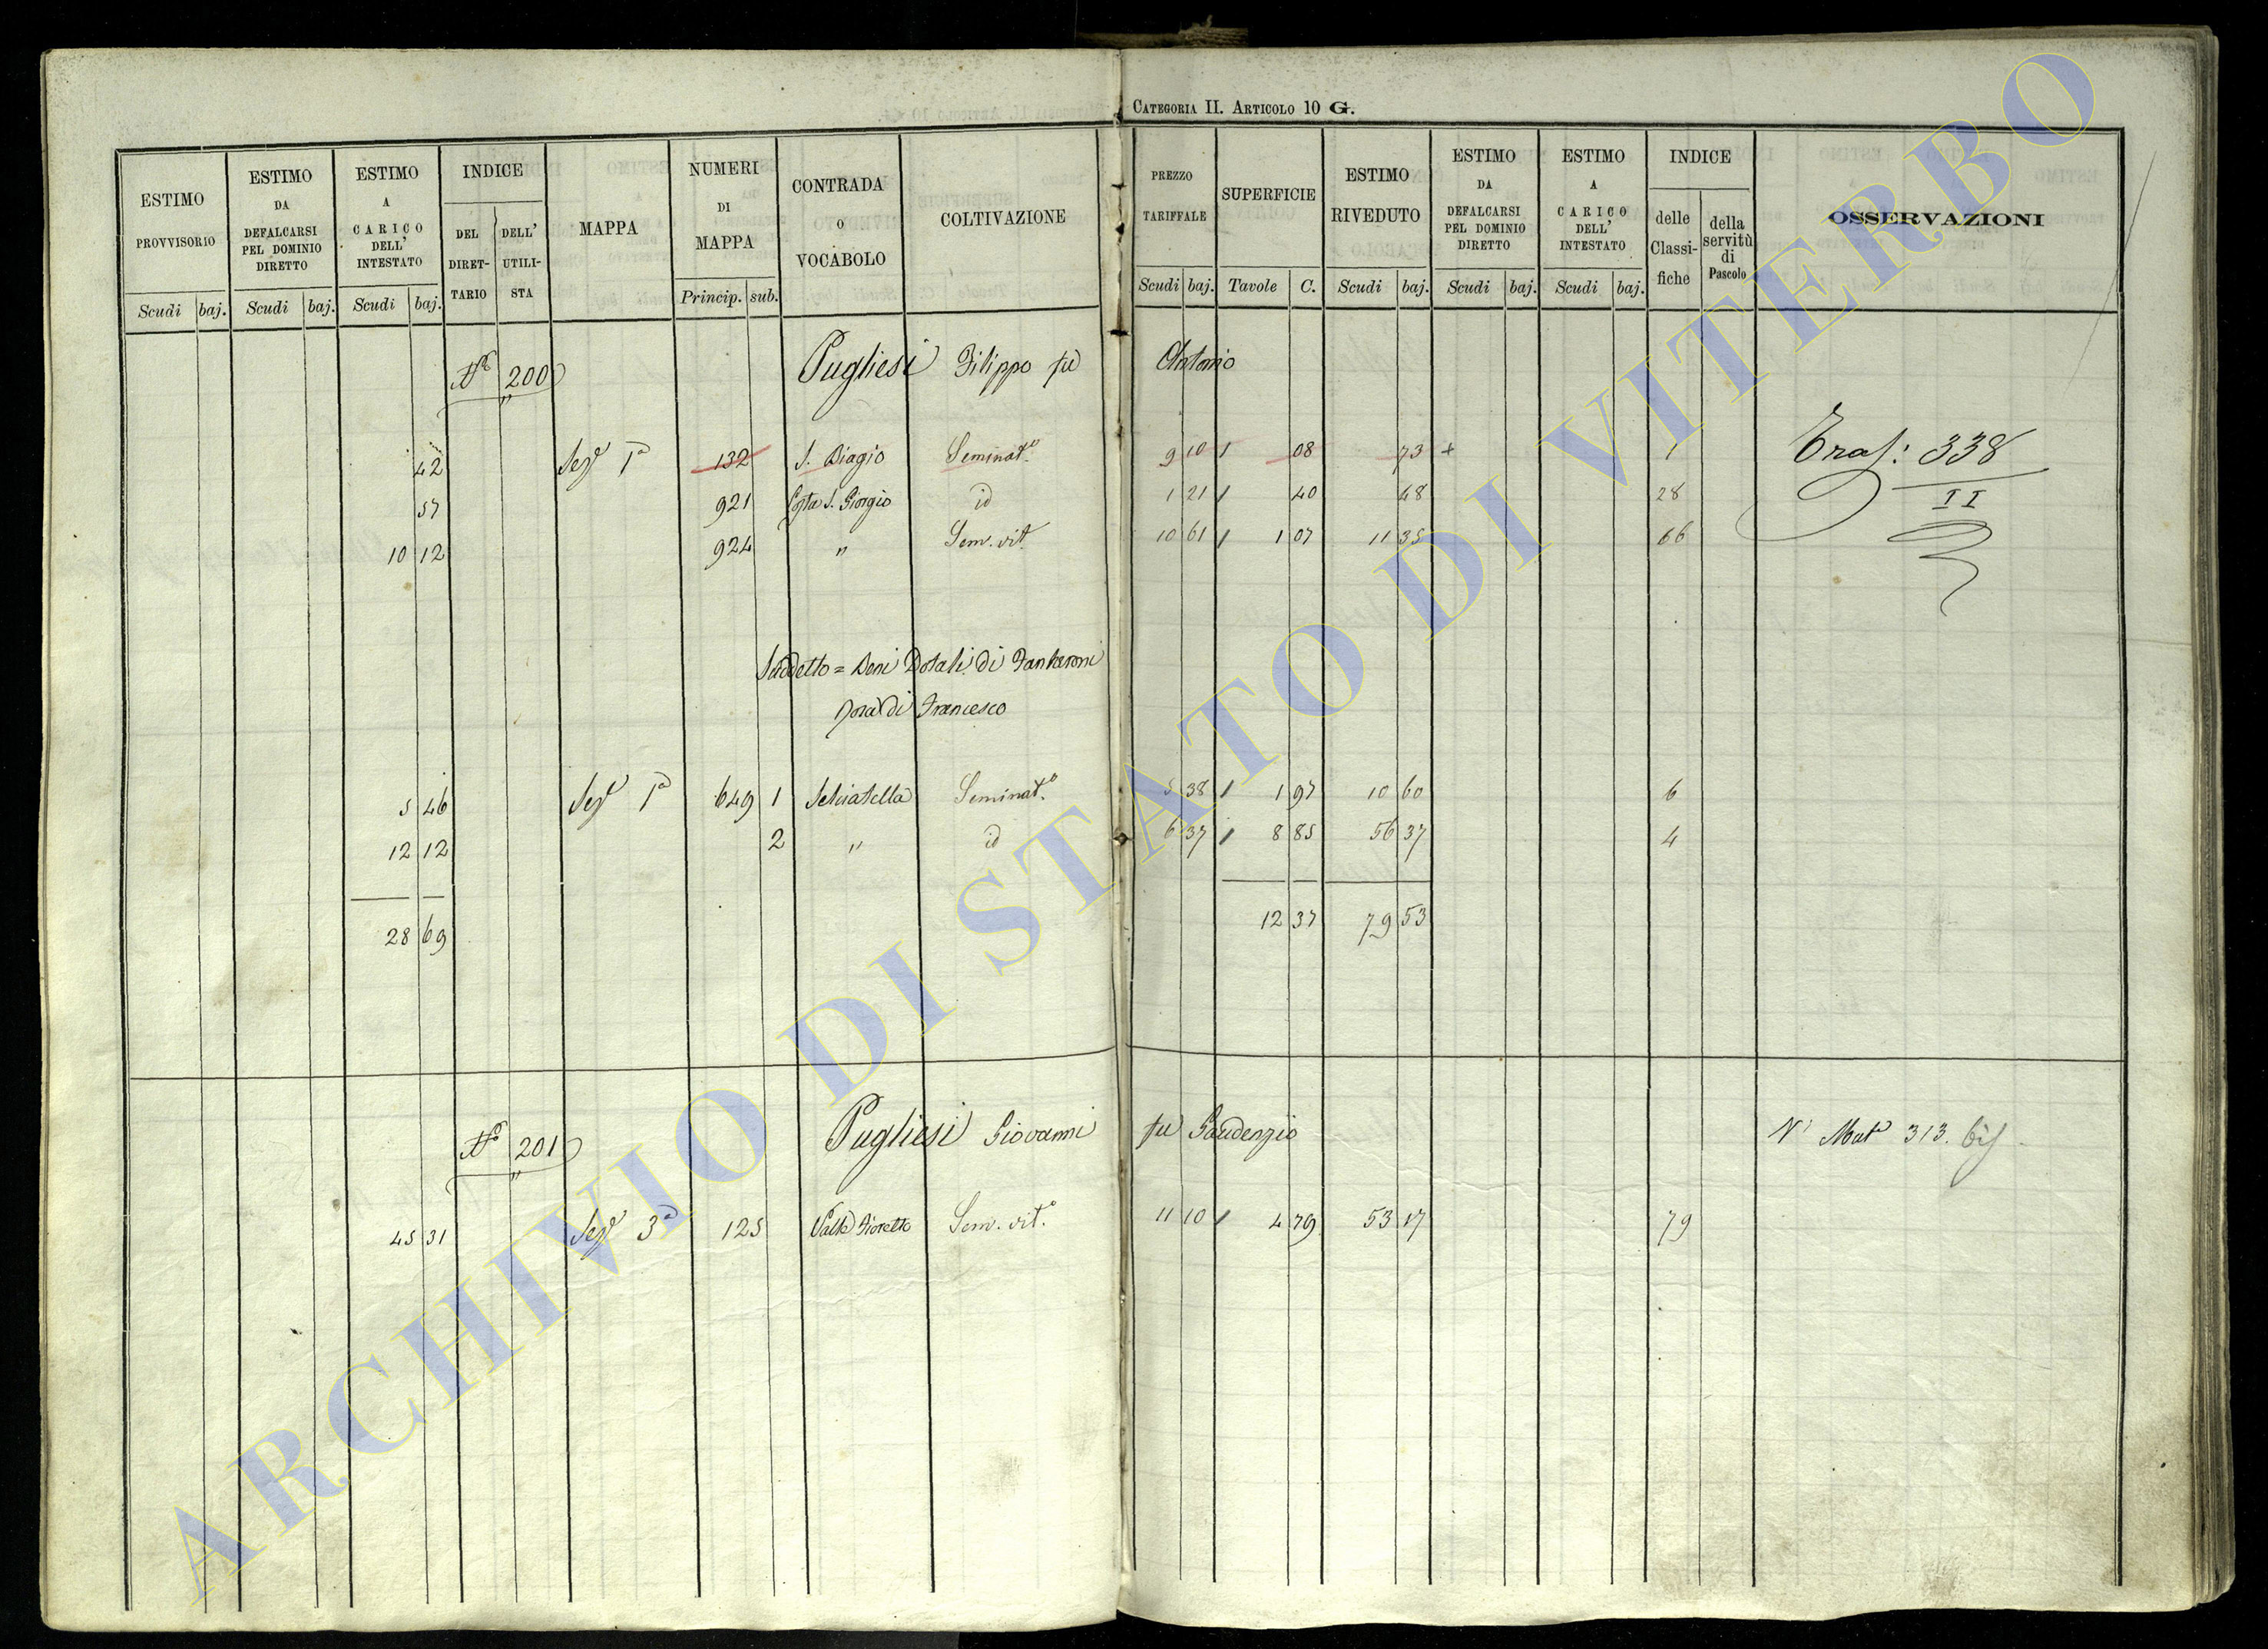 CATEGORIA II. ARTICOLO 10 G.
ESTIMO PROVVISORIO Scudi baj.
ESTIMO DA DEFALCARSI PEL DOMINIO DIRETTO Scudi baj.
ESTIMO A CARICO DELL' INTESTATO Scudi baj.
INDICE DEL DIRETTARIO DELL' UTILISTA
MAPPA
NUMERI DI MAPPA Princip. sub.
CONTRADA O VOCABOLO
COLTIVAZIONE
PREZZO TARIFFALE Scudi baj.
SUPERFICIE Tavole C.
ESTIMO RIVEDUTO Scudi baj.
ESTIMO DA DEFALCARSI PEL DOMINIO DIRETTO Scudi baj.
ESTIMO A CARICO DELL' INTESTATO Scudi baj.
INDICE delle Classifiche della servitù di Pascolo
OSSERVAZIONI
N° 200 Pugliesi Filippo fu Antonio
42 Sez.e 1a 132 S. Biagio Seminat.o 9 10 08 73 + 1 Tras: 338
57 921 Costa S. Giorgio id 1 21 40 48 28 II
10 12 924 " Sem. vit. 10 61 1 07 11 35 66
Suddetto = Beni Dotali di
di Francesco
5 46 Sez.e 1a 649 1 Selciatella Seminat.o 5 38 1 97 10 60 6
12 12 2 " id 6 37 8 85 56 37 4
28 69 12 37 79 53
N° 201 Pugliesi Giovanni fu Gaudenzio N° Mat.a 313. bis
45 31 Sez.e 3a 125 Valle Fioretto Sem. vit.o 11 10 4 79 53 17 79
ARCHIVIO DI STATO DI VITERBO